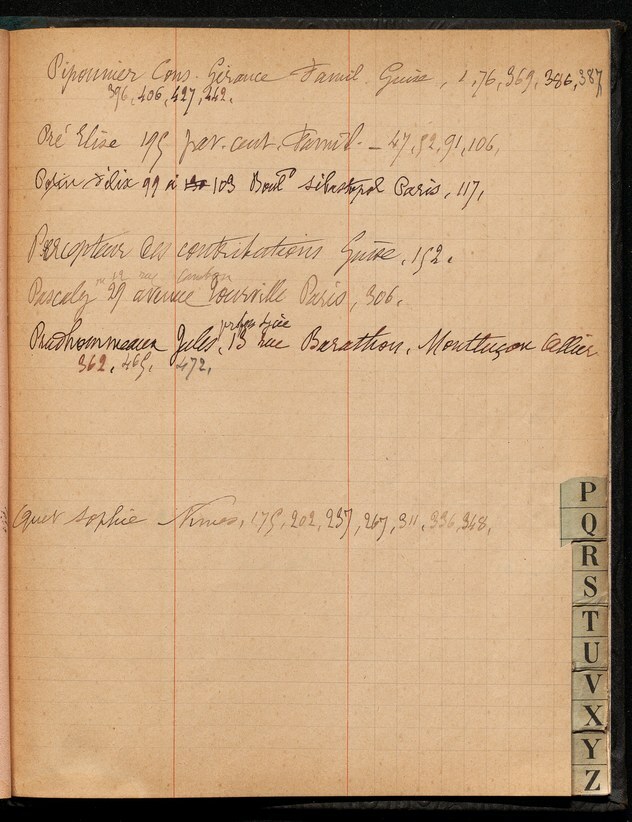 Piponnier Cons. Gérance Famil. Guise, 1, 76, 369, 386, 387
396, 406, 427, 442.
Pré Elise 195 par. cent. Famil. – 47, 52, 91, 106,
Potin Félix 99 à 103 Boul.d Sébastopol Paris, 117,
Percepteur des contributions Guise, 152.
rue Cambon
Pascaly 29 avenue Tourville Paris, 306.
professeur
Prudhommeaux Jules, 13 rue Barathon, Montluçon Allier
362, 465, 472,
Quet Sophie Nimes, 175, 202, 237, 267, 311, 336, 368,
P
Q
R
S
T
U
V
X
Y
Z